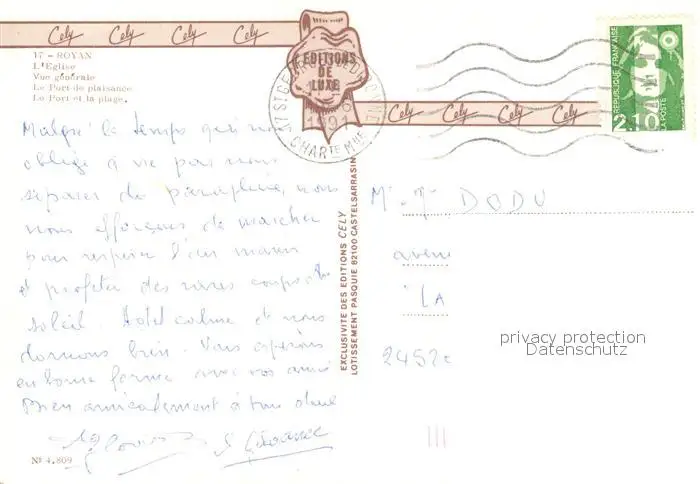 Cely Cely Cely Cely
17 - ROYAN
L'Eglise
Vue générale
Le Port de plaisance
Le Port et la plage.
EDITIONS
DE
LUXE
Cely Cely Cely Cely
REPUBLIQUE FRANÇAISE
2,10
LA POSTE
17 ST GE
1991
CHARTE MME
Malgré le temps qui nous
oblige à ne pas nous
séparer du parapluie, nous
nous efforçons de marcher
pour respirer l'air marin
et profiter des rares coups de
soleil. Hotel calme et nous
dormons bien. Vous espérons
en bonne forme avec vos amis
Bien amicalement à tous deux
EXCLUSIVITE DES EDITIONS CELY
LOTISSEMENT PASQUIE 82100 CASTELSARRASIN
Mr Mme DODU
avenu
LA
2452
privacy protection
Datenschutz
Nº 4.809